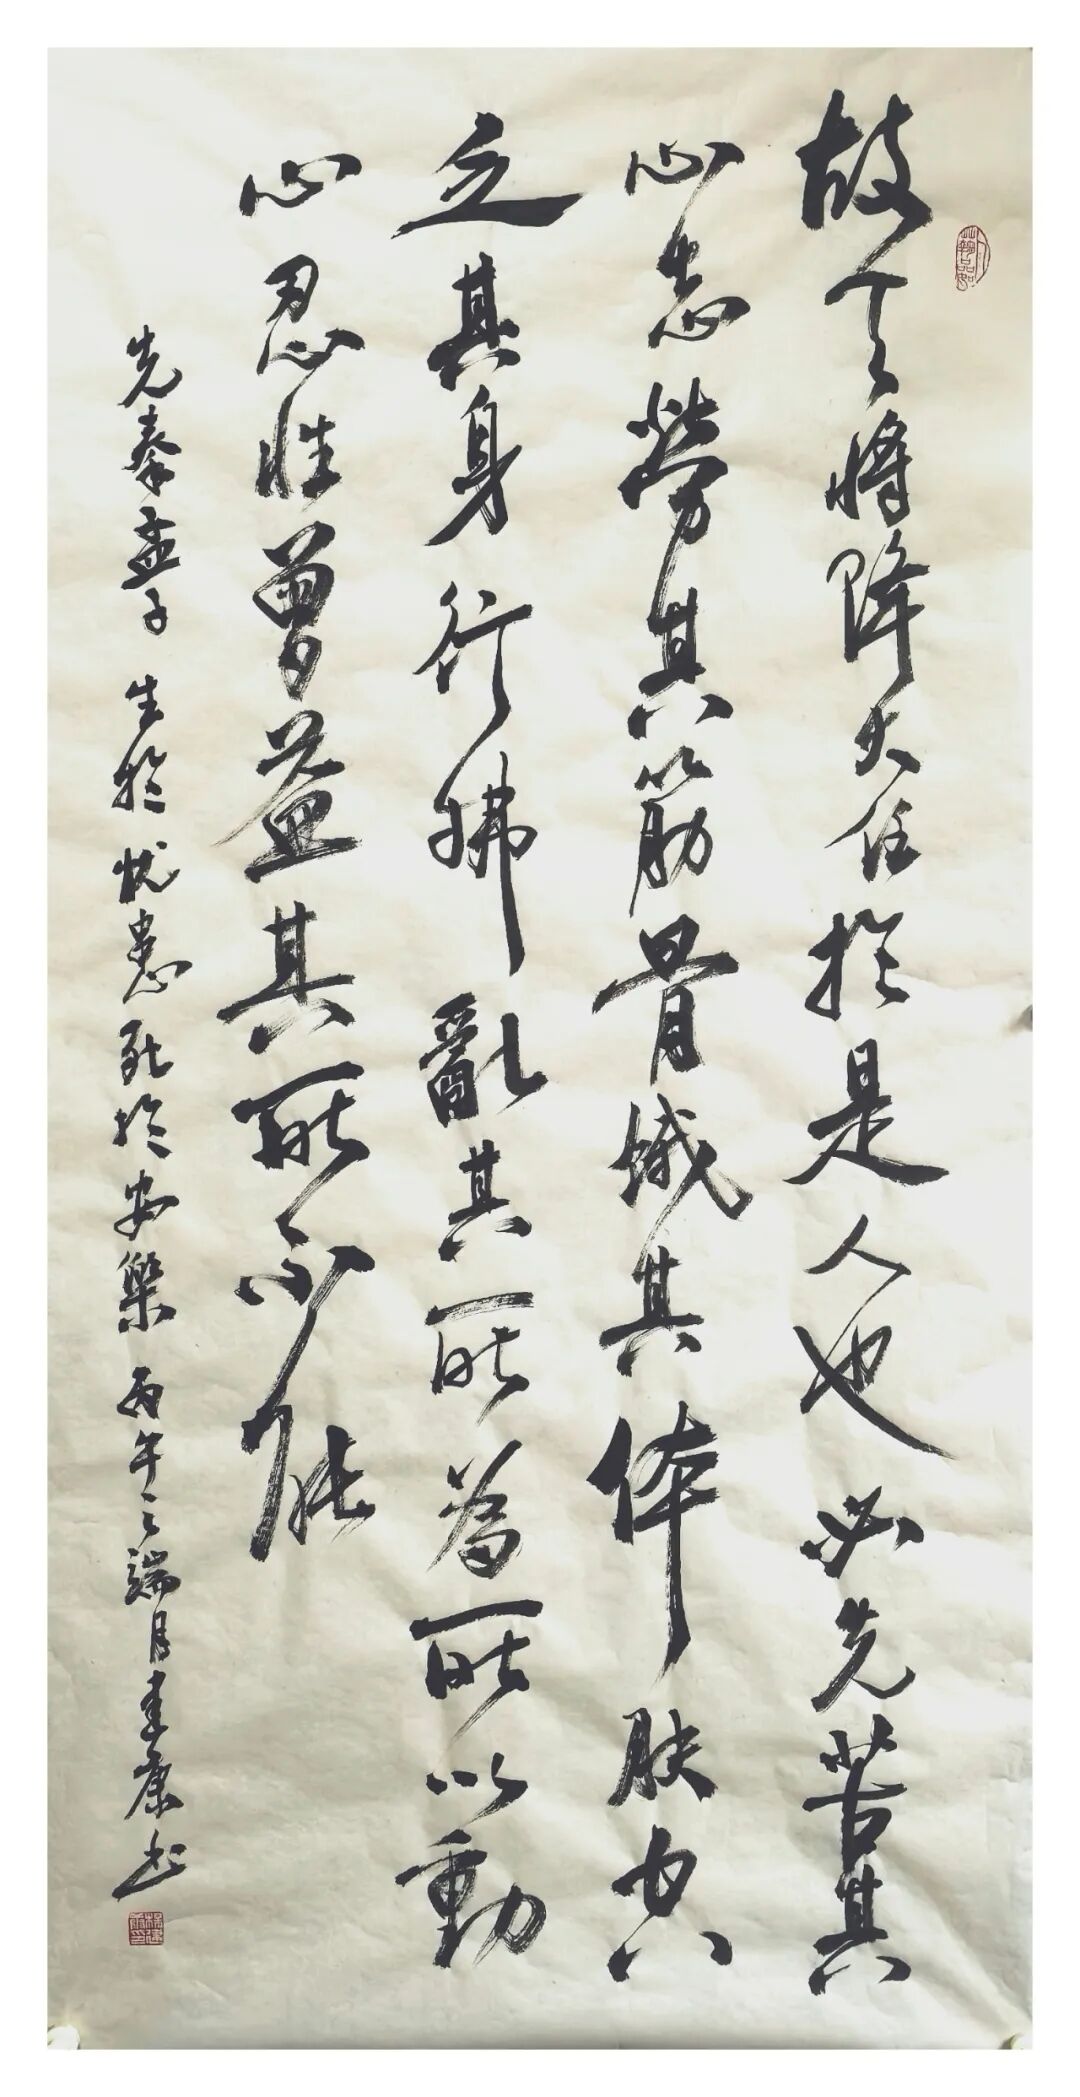 故天将降大任於是人也必先苦其
心志勞其筋骨饿其体肤空
乏其身行拂亂其所為所以動
心忍性曾益其所不能
先秦孟子 生於忧患死於安樂 丙午之端月建康书